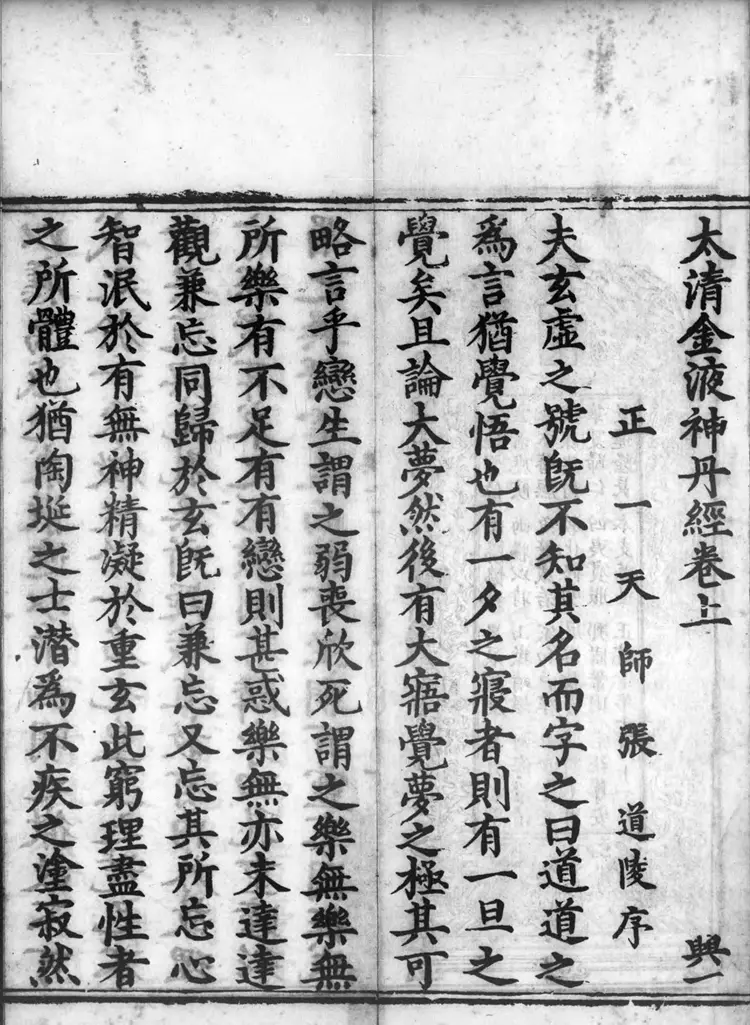 太清金液神丹經卷上
興一
正一天師張道陵序
夫玄虛之號旣不知其名而字之曰道道之
爲言猶覺悟也有一夕之寢者則有一旦之
覺矣且論大夢然後有大寤覺夢之極其可
略言乎戀生謂之弱喪欣死謂之樂無樂無
所樂有不足有有戀則甚惑樂無亦未達達
觀兼忘同歸於玄旣曰兼忘又忘其所忘心
智泯於有無神精凝於重玄此窮理盡性者
之所體也猶陶埏之士潜爲不疾之塗寂然